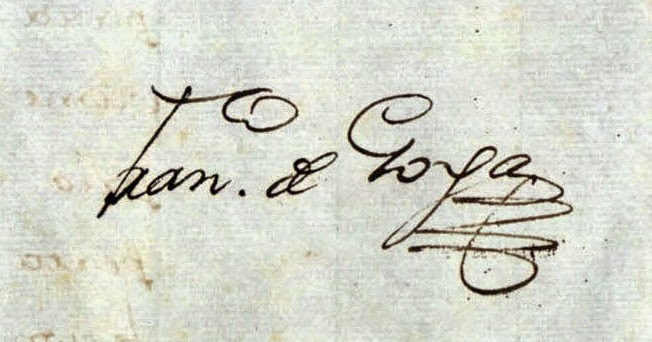 Fran.co de Goya